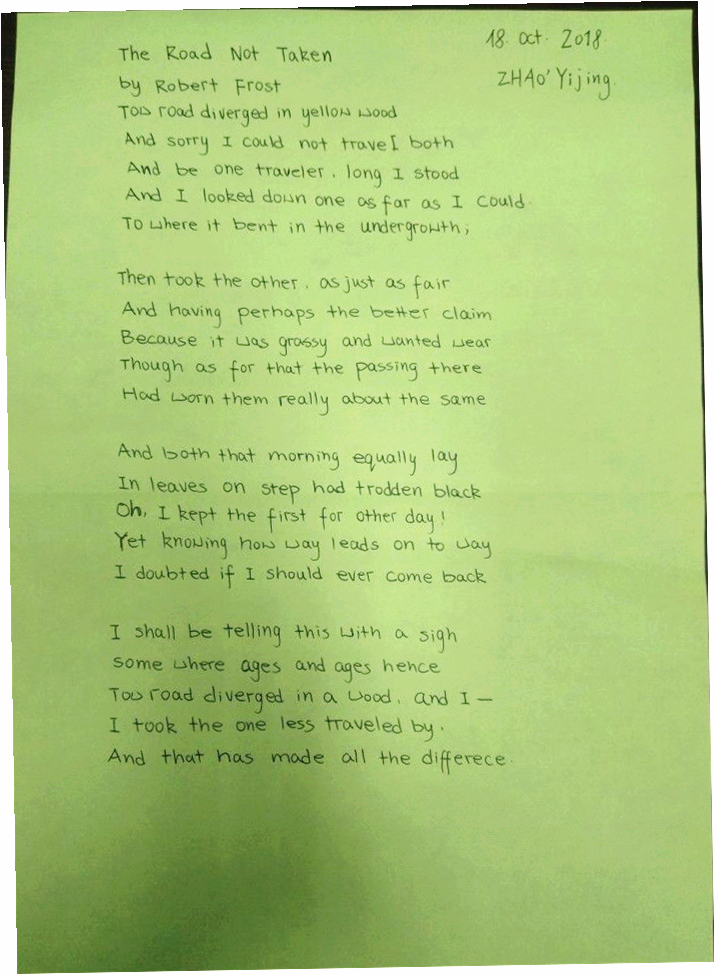 The Road Not Taken
18. oct. 2018.
by Robert Frost
ZHAO Yijing.
Tow road diverged in yellow wood
And sorry I could not travel both
And be one traveler, long I stood
And I looked down one as far as I could.
To where it bent in the undergrowth;
Then took the other, as just as fair
And having perhaps the better claim
Because it was grassy and wanted wear
Though as for that the passing there
Had worn them really about the same
And both that morning equally lay
In leaves on step had trodden black
Oh, I kept the first for other day!
Yet knowing how way leads on to way
I doubted if I should ever come back
I shall be telling this with a sigh
some where ages and ages hence
Tow road diverged in a wood, and I —
I took the one less traveled by.
And that has made all the differece.